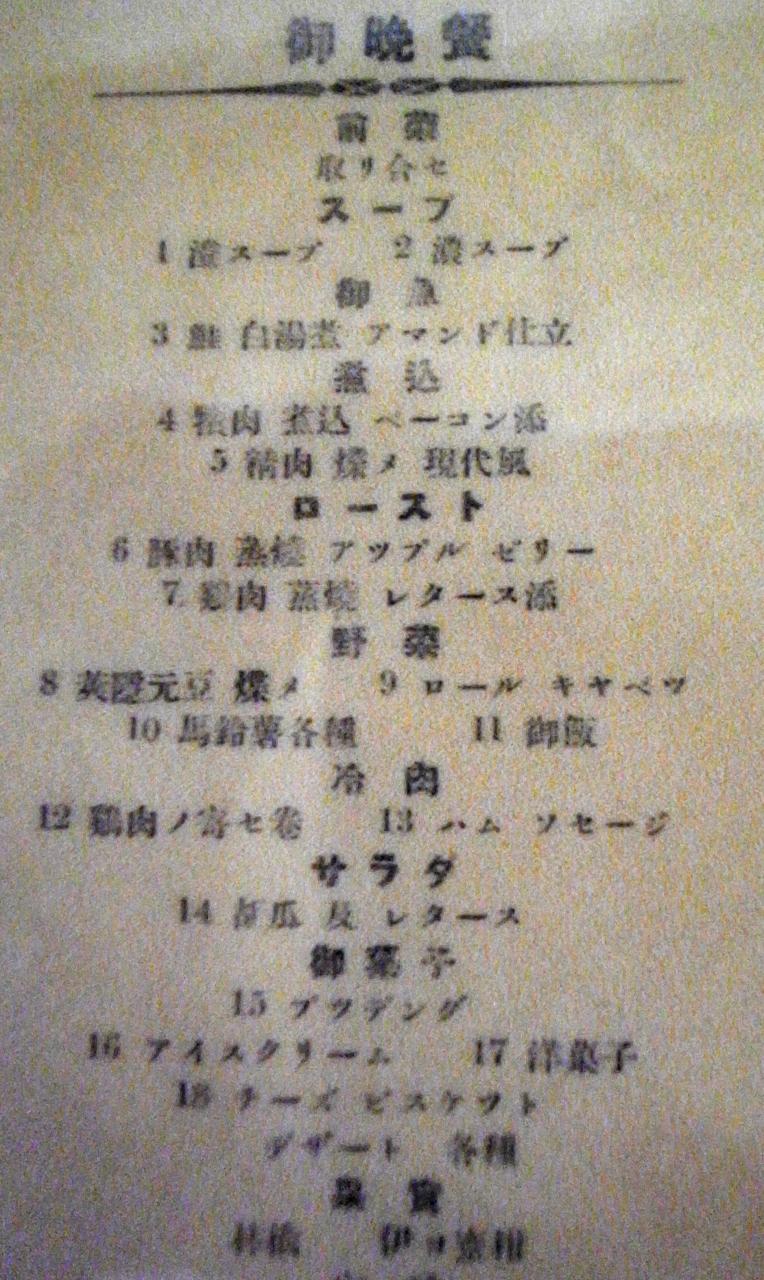 御晩餐
前菜
取リ合セ
スープ
1 澄スープ 2 濃スープ
御魚
3 鮭 白湯煮 アマンド仕立
煮込
4 犢肉 煮込 ベーコン添
5 精肉 煠メ 現代風
ロースト
6 豚肉 蒸焼 アツプル ゼリー
7 鶏肉 蒸焼 レタース添
野菜
8 莢隠元豆 煠メ 9 ロール キヤベツ
10 馬鈴薯各種 11 御飯
冷肉
12 鶏肉ノ寄セ巻 13 ハム ソセージ
サラダ
14 胡瓜 及 レタース
御菓子
15 プツデング
16 アイスクリーム 17 洋菓子
18 チーズ ビスケツト
デザート 各種
果實
林檎 伊予蜜柑